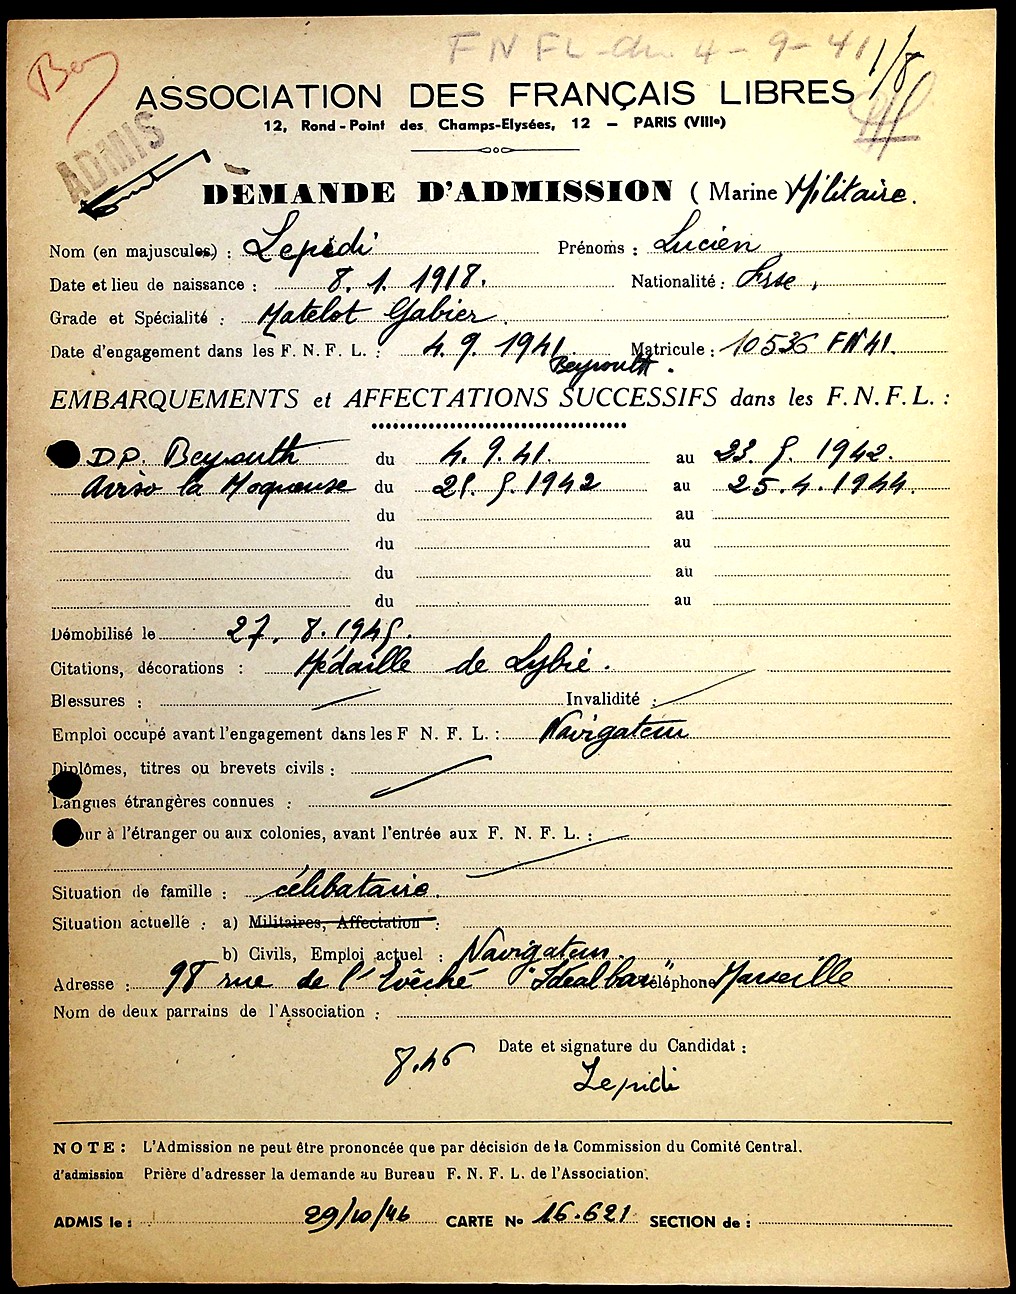 FNFL du 4-9-41 1/8
ASSOCIATION DES FRANÇAIS LIBRES
12, Rond-Point des Champs-Elysées, 12 — PARIS (VIIIe)
ADMIS
DEMANDE D'ADMISSION ( Marine Militaire.
Nom (en majuscules) : Lepidi Prénoms : Lucien
Date et lieu de naissance : 8. 1. 1918. Nationalité :
Grade et Spécialité : Matelot Gabier.
Date d'engagement dans les F. N. F. L. : 4. 9. 1941 Matricule : 10536 FN 41.
Beyrouth.
EMBARQUEMENTS et AFFECTATIONS SUCCESSIFS dans les F. N. F. L. :
DP. Beyrouth du 4. 9. 41. au 23. 5. 1942.
Aviso la Moqueuse du 21. 5. 1942 au 25. 4. 1944.
du au
du au
du au
du au
Démobilisé le 27. 8. 1945.
Citations, décorations : Médaille de Lybie.
Blessures : Invalidité :
Emploi occupé avant l'engagement dans les F N. F. L. : Navigateur
Diplômes, titres ou brevets civils :
Langues étrangères connues :
ur à l'étranger ou aux colonies, avant l'entrée aux F. N. F. L. :
Situation de famille : célibataire.
Situation actuelle : a) Militaires, Affectation :
b) Civils, Emploi actuel : Navigateur.
Adresse : 98 rue de l'Evêché "Idéal bar" téléphone Marseille
Nom de deux parrains de l'Association :
8.46 Date et signature du Candidat :
Lepidi
NOTE : L'Admission ne peut être prononcée que par décision de la Commission du Comité Central.
d'admission Prière d'adresser la demande au Bureau F. N. F. L. de l'Association.
ADMIS le : 29/10/46 CARTE No 16.621 SECTION de :